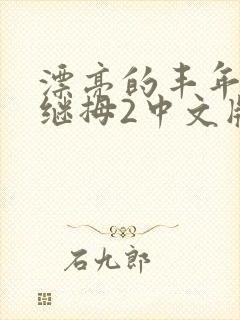 漂亮的丰年
继拇2中文
石九郎